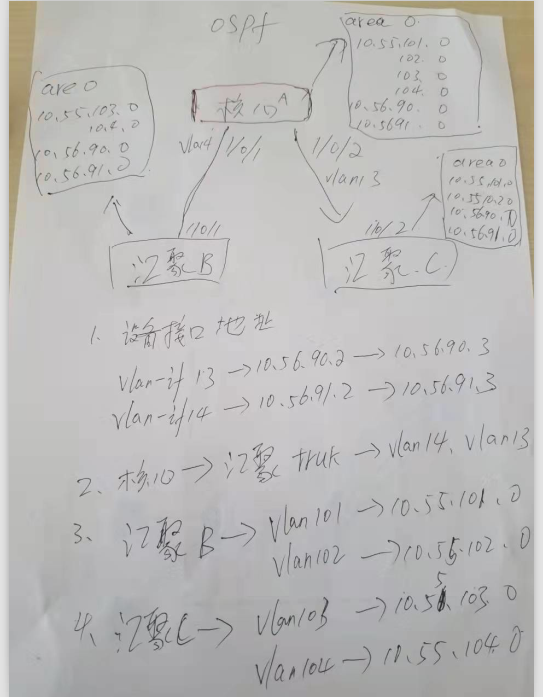 ospf
area 0
10.55.101.0
102.0
103.0
104.0
10.56.90.0
10.5691.0
核心A
areo
10.55.103.0
10.4.0
10.56.90.0
10.56.91.0
vlan4
1/0/1
1/0/2
vlan13
area 0
10.55.101.0
10.5510.20
10.5690.0
10.56.91.0
1/0/1
汇聚B
1/0/2
汇聚.C.
1、设备接口地址
vlan-if 13→10.56.90.2→10.56.90.3
vlan-if 14→10.56.91.2→10.56.91.3
2、核心→汇聚 truk→vlan14、vlan13
3、汇聚B→vlan101→10.55.101.0
vlan102→10.55.102.0
4、汇聚C→vlan103→10.55.103.0
vlan104→10.55.104.0